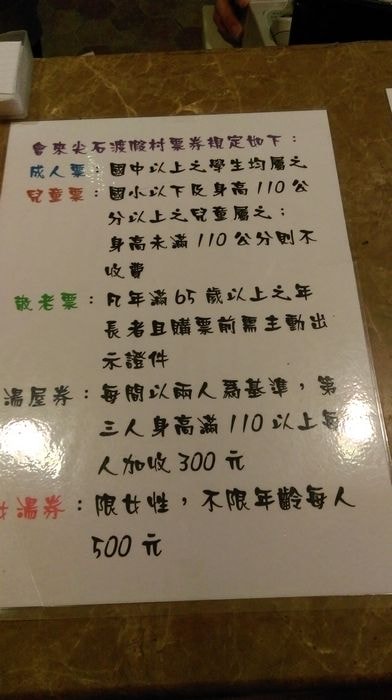 會來尖石渡假村票券規定如下：
成人票：國中以上之學生均屬之
兒童票：國小以下及身高110公
分以上之兒童屬之；
身高未滿110公分則不
收費
敬老票：凡年滿65歲以上之年
長者且購票前需主動出
示證件
湯屋券：每間以兩人為基準，第
三人身高滿110以上每
人加收300元
女湯券：限女性，不限年齡每人
500元